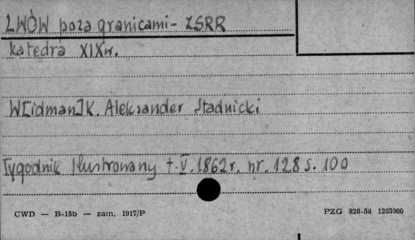 LWÓW poza granicami - ZSRR
Katedra XIX w.
W[idman] K. Aleksander Stadnicki
Tygodnik Ilustrowany t. V. 1862 r. nr. 128 s. 100
CWD — B-15b — zam. 1917/P
PZG 828-58 1263000